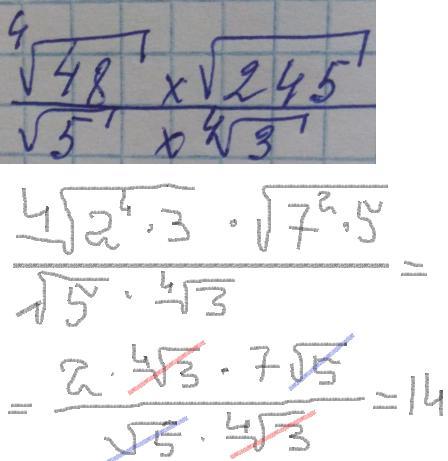 ⁴√48 × √245
√5 × ⁴√3
⁴√2⁴·3 · √7²·5
√5 · ⁴√3 =
2·⁴√3 · 7√5
= √5 · ⁴√3 = 14